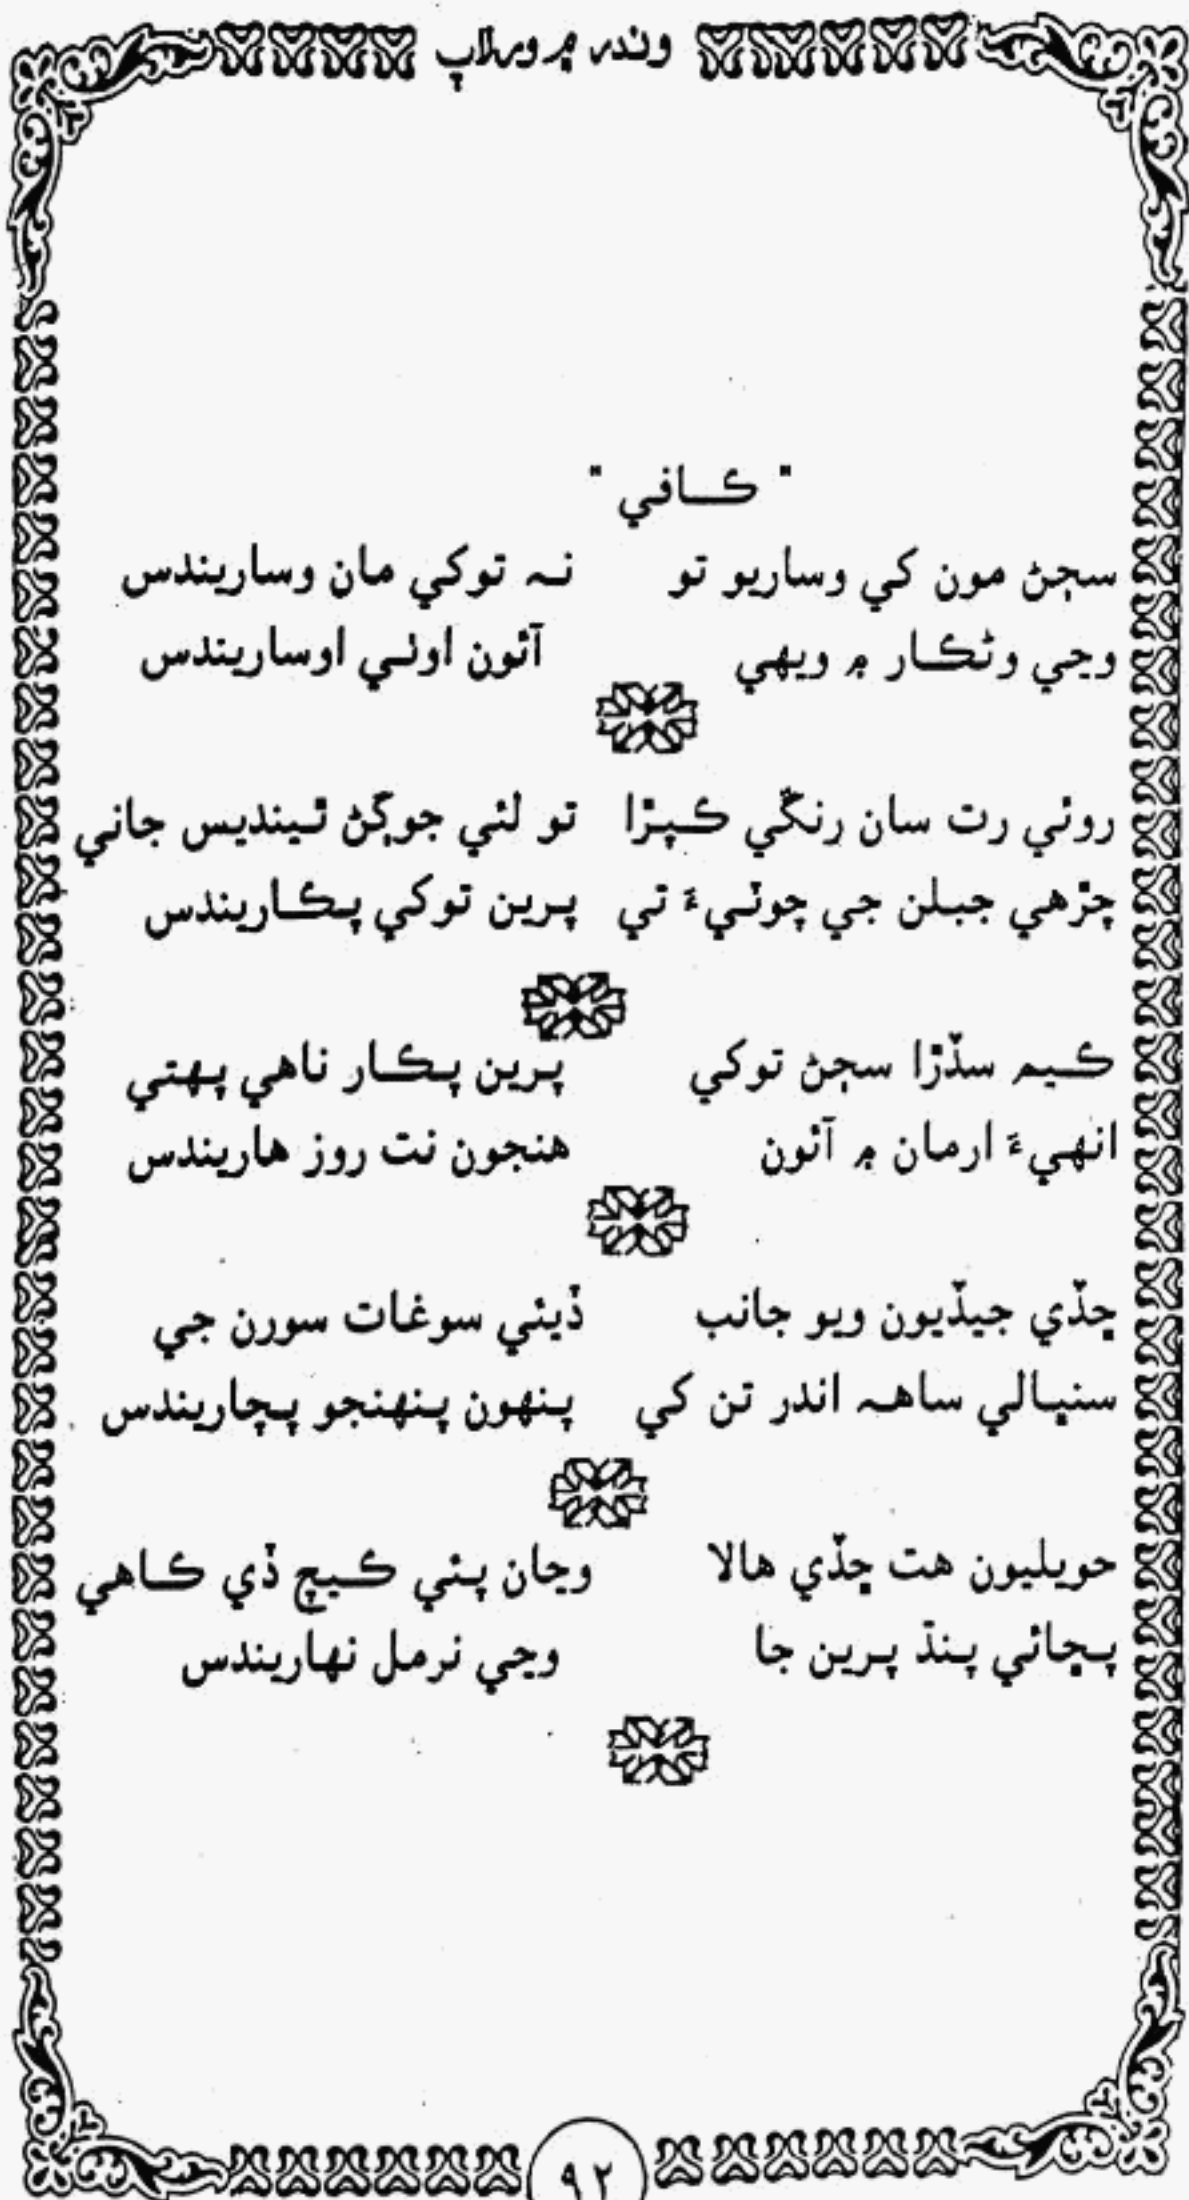 وندر ۾ ورلاپ
" ڪافي "
سڄڻ مون کي وساريو تو نہ توکي مان وساريندس
وڃي وڻڪار ۾ ويهي آئون اوئي اوساريندس
روئي رت سان رنڱي ڪپڙا تو لئي جوڳڻ ٿينديس جاني
چڙهي جبلن جي چوٽيءَ تي پرين توکي پڪاريندس
ڪيم سڏڙا سڄڻ توکي پرين پڪار ناهي پهتي
انهيءَ ارمان ۾ آئون هنجون نت روز هاريندس
ڇڏي جيڏيون ويو جانب ڏيئي سوغات سورن جي
سنڀالي ساهہ اندر تن کي پنهون پنهنجو پچاريندس
حويليون هت ڇڏي هالا وڃان پئي ڪيچ ڏي ڪاهي
پڇائي پنڌ پرين جا وڃي نرمل نهاريندس
٩٢